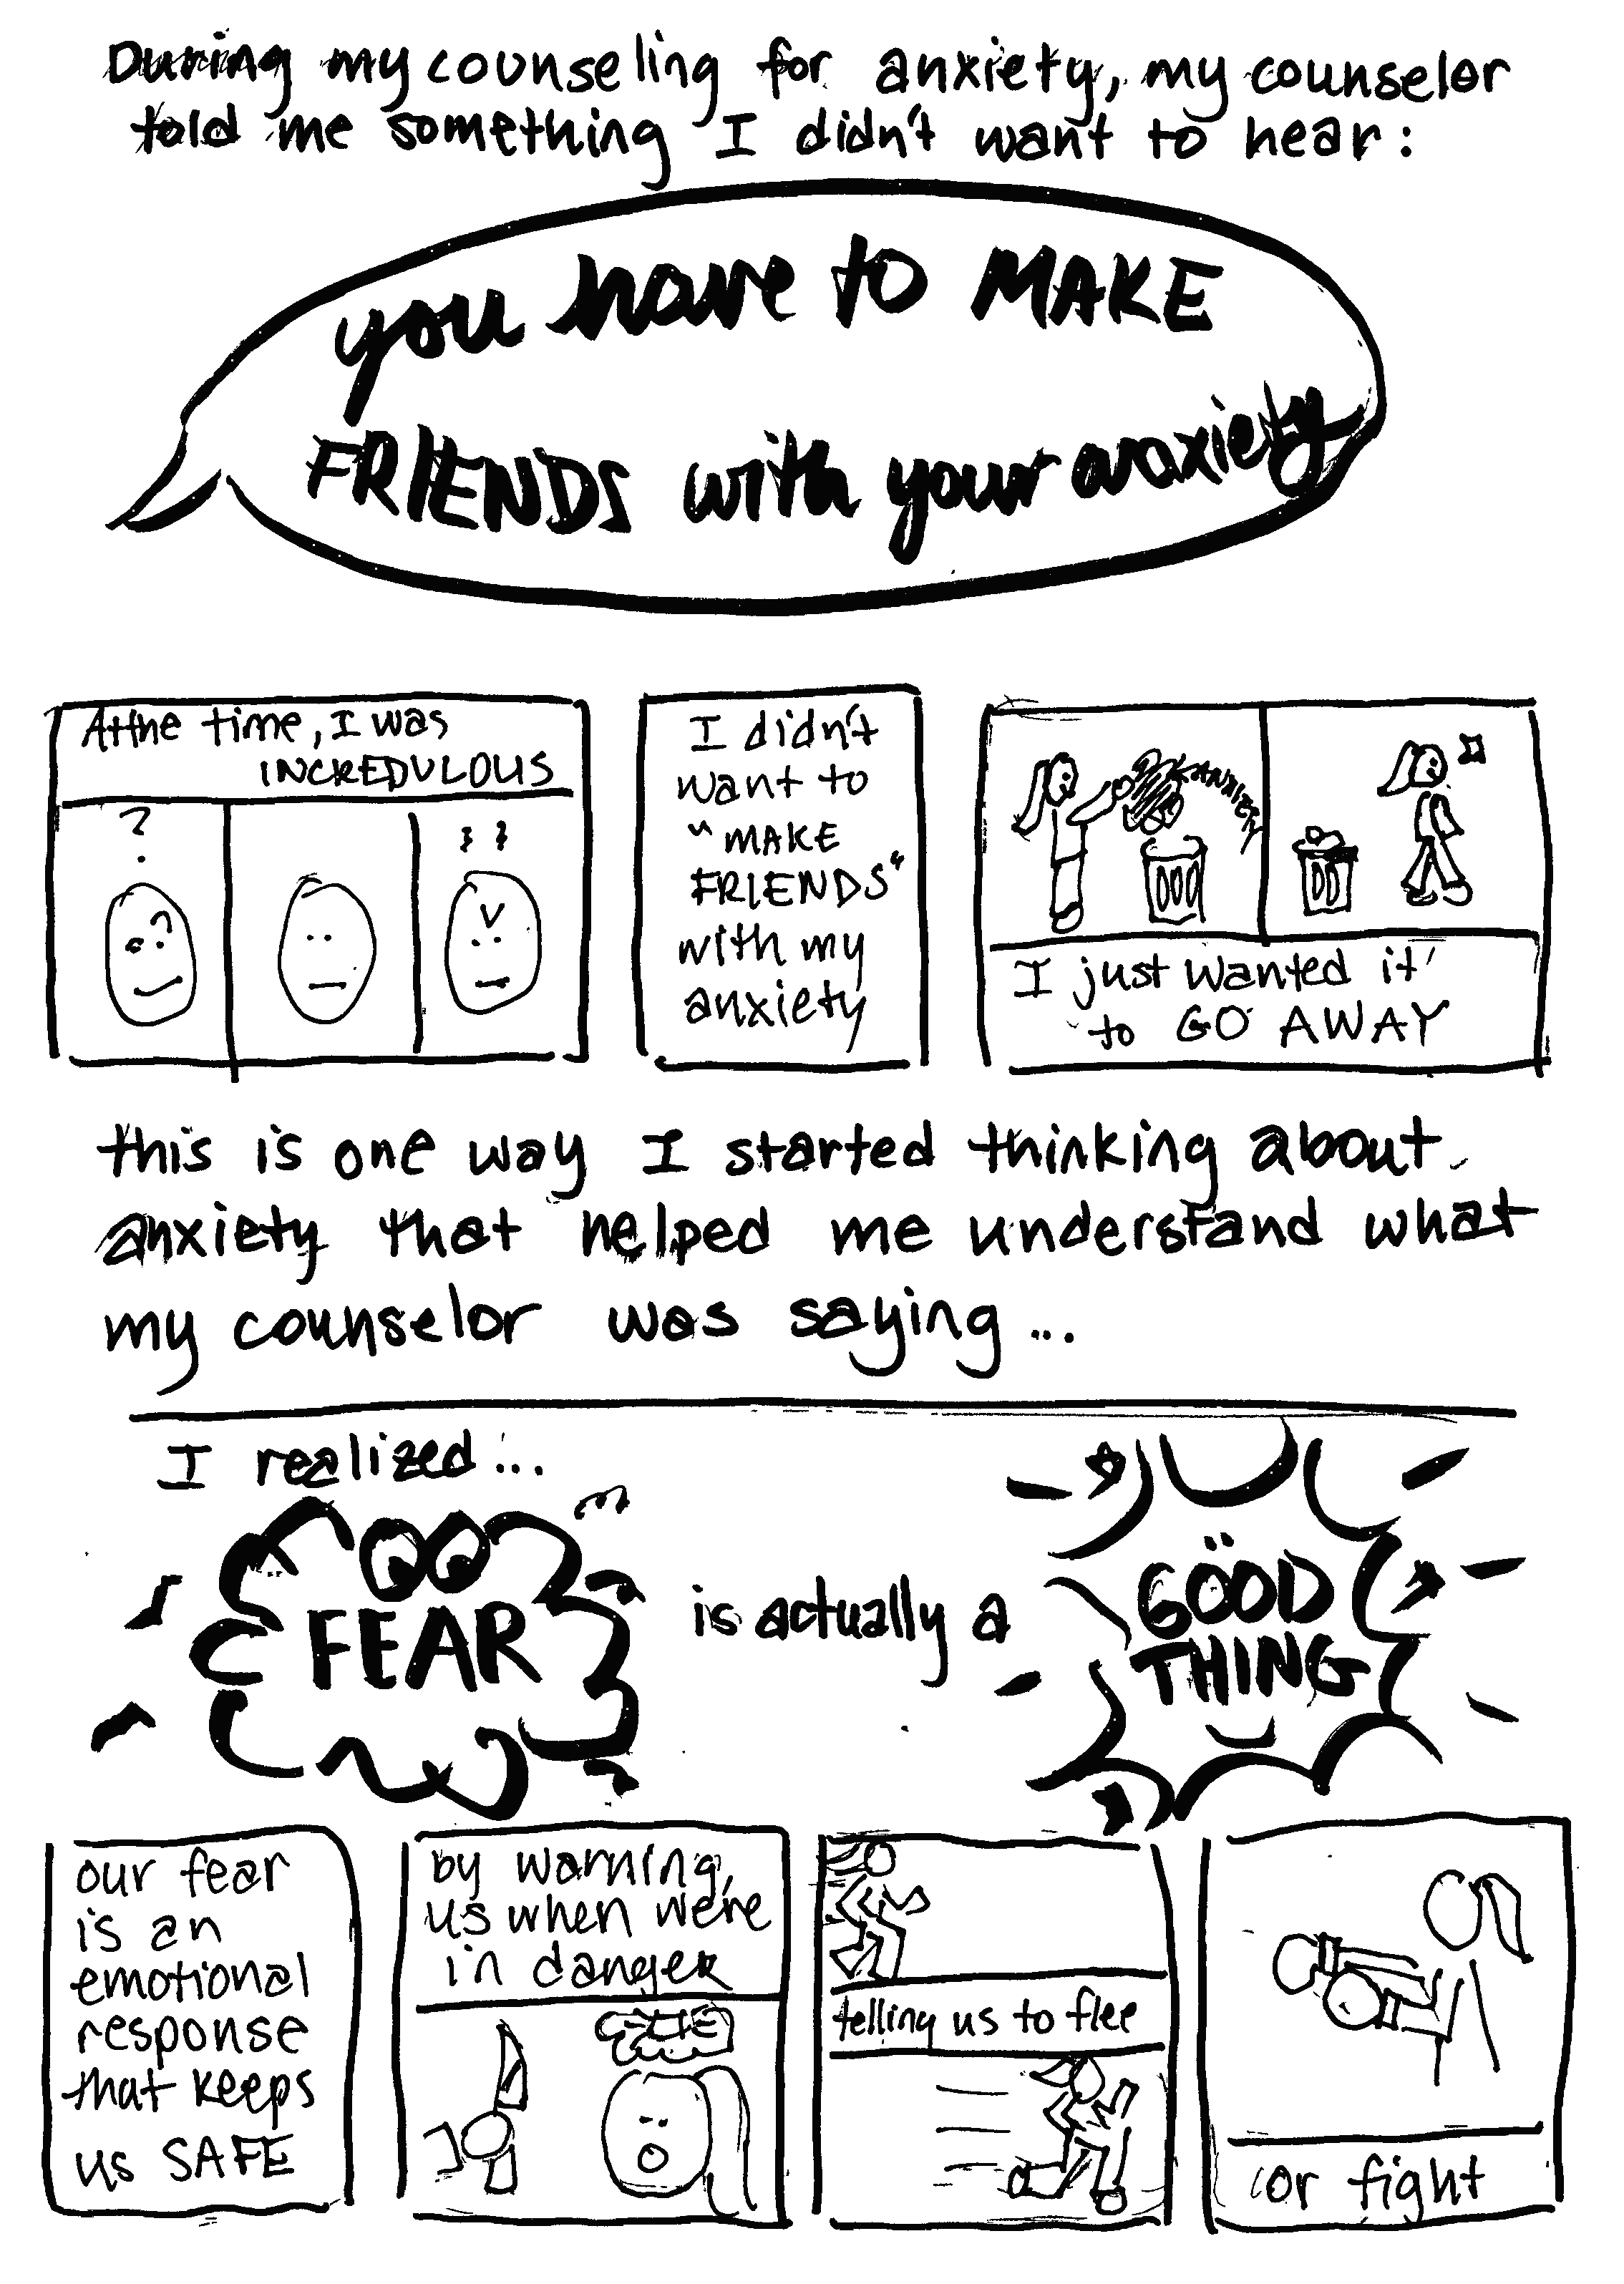 During my counseling for anxiety, my counselor
told me something I didn't want to hear:
you have to MAKE
FRIENDS with your anxiety
At the time, I was
INCREDULOUS
?
I didn't
want to
"MAKE
FRIENDS"
with my
anxiety
ANXIETY
I just wanted it
to GO AWAY
this is one way I started thinking about
anxiety that helped me understand what
my counselor was saying...
I realized...
FEAR
is actually a
GOOD
THING
our fear
is an
emotional
response
that keeps
us SAFE
by warning
us when we're
in danger
telling us to flee
or fight